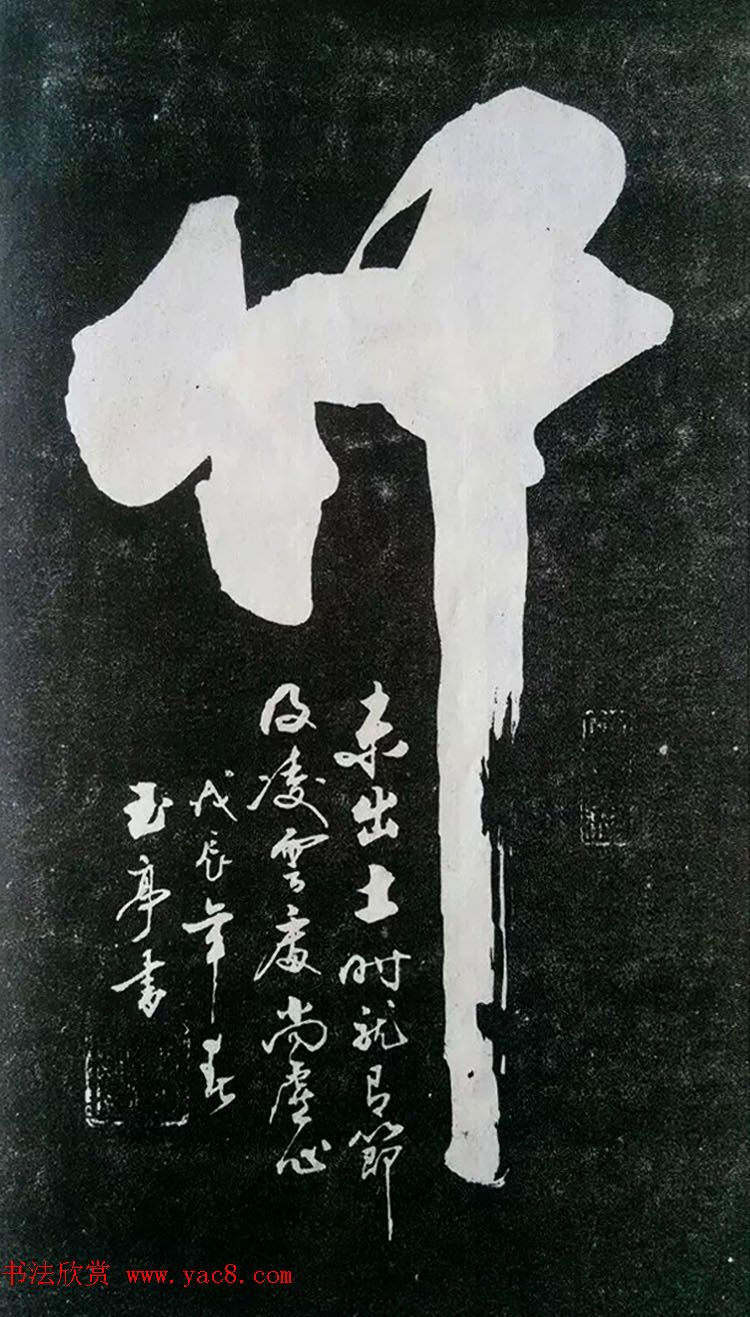 竹
未出土时就有節
及凌雲處尚虚心
戊辰年春
玉亭書
书法欣赏 www.yac8.com